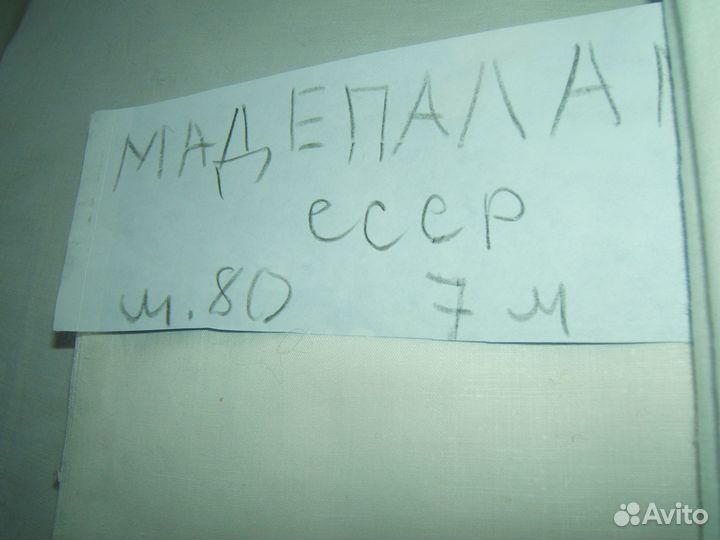 МАДЕПАЛАМ
СССР
ш. 80 7 м
Avito